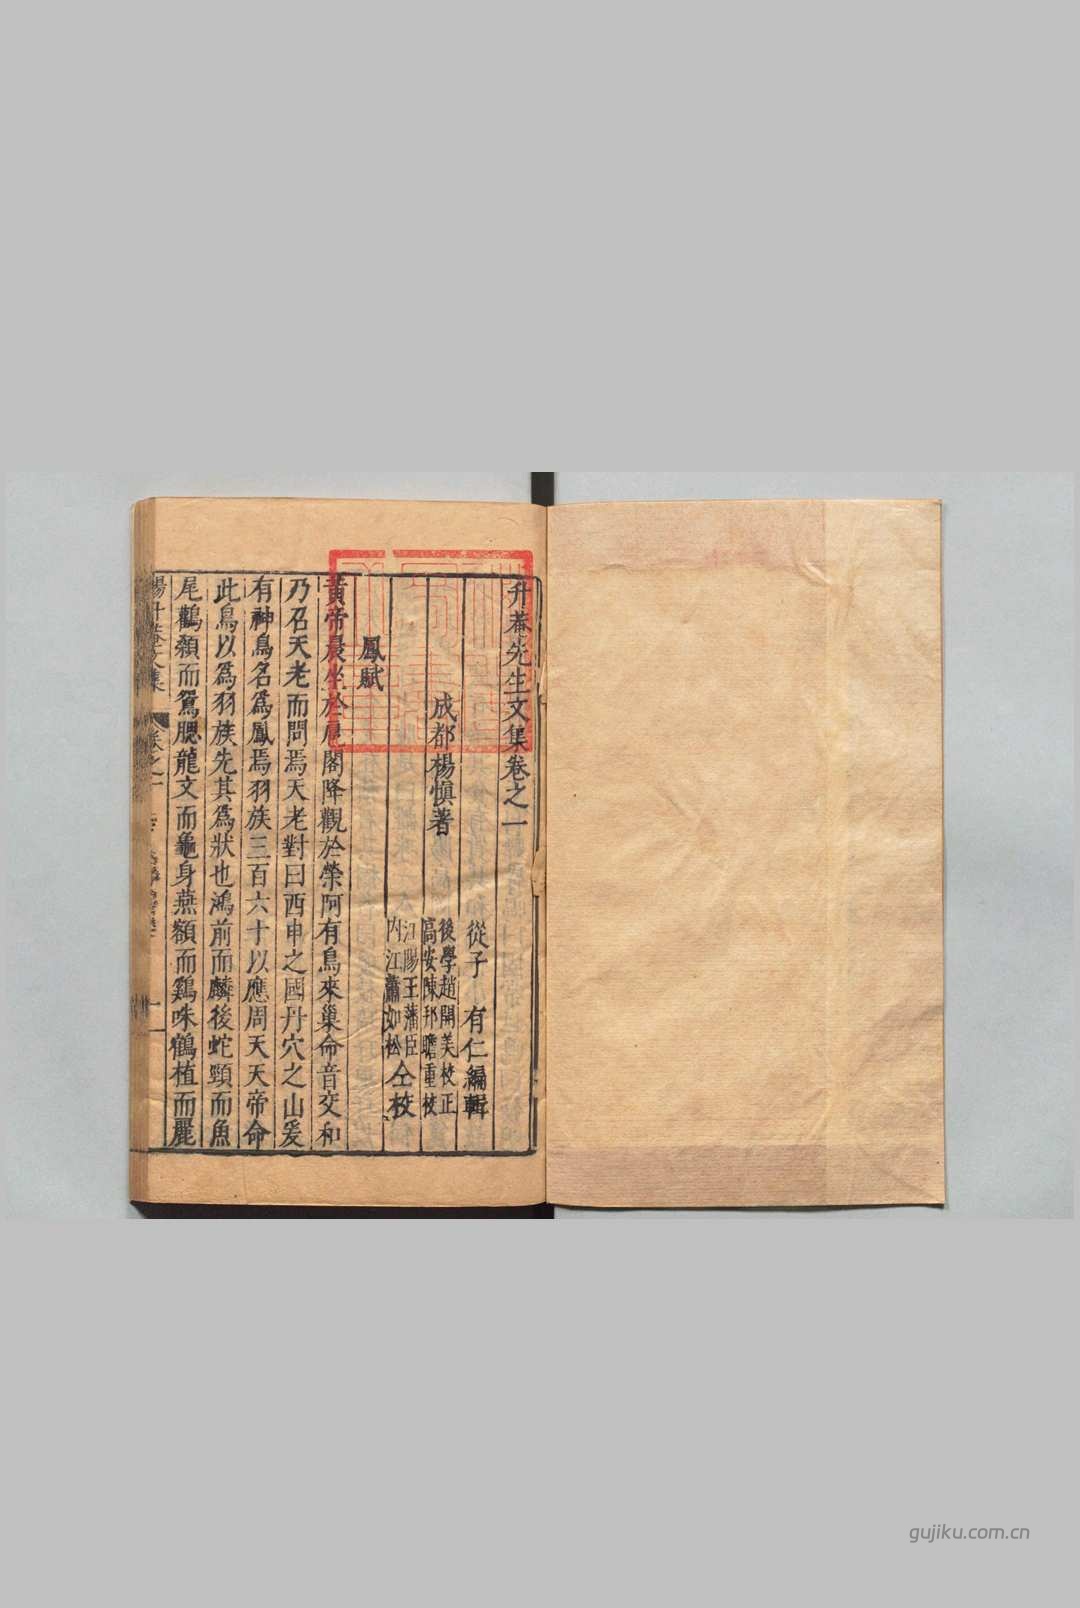 升菴先生文集卷之一
成都楊慎著
從子 有仁編輯
後學趙開美校正
高安陳邦瞻重校
江陽王藩臣
內江蕭如松
仝校
鳳賦
黃帝晨坐於扈閣降觀於榮阿有鳥來巢命音交和
乃召天老而問焉天老對曰西申之國丹穴之山爰
有神鳥名爲鳳焉羽族三百六十以應周天天帝命
此鳥以爲羽族先其爲狀也鴻前而麟後蛇頸而魚
尾鸛顙而鴛腮龍文而龜身燕頷而鷄咮鶴植而麗
楊升菴文集
卷之一
gujiku.com.cn